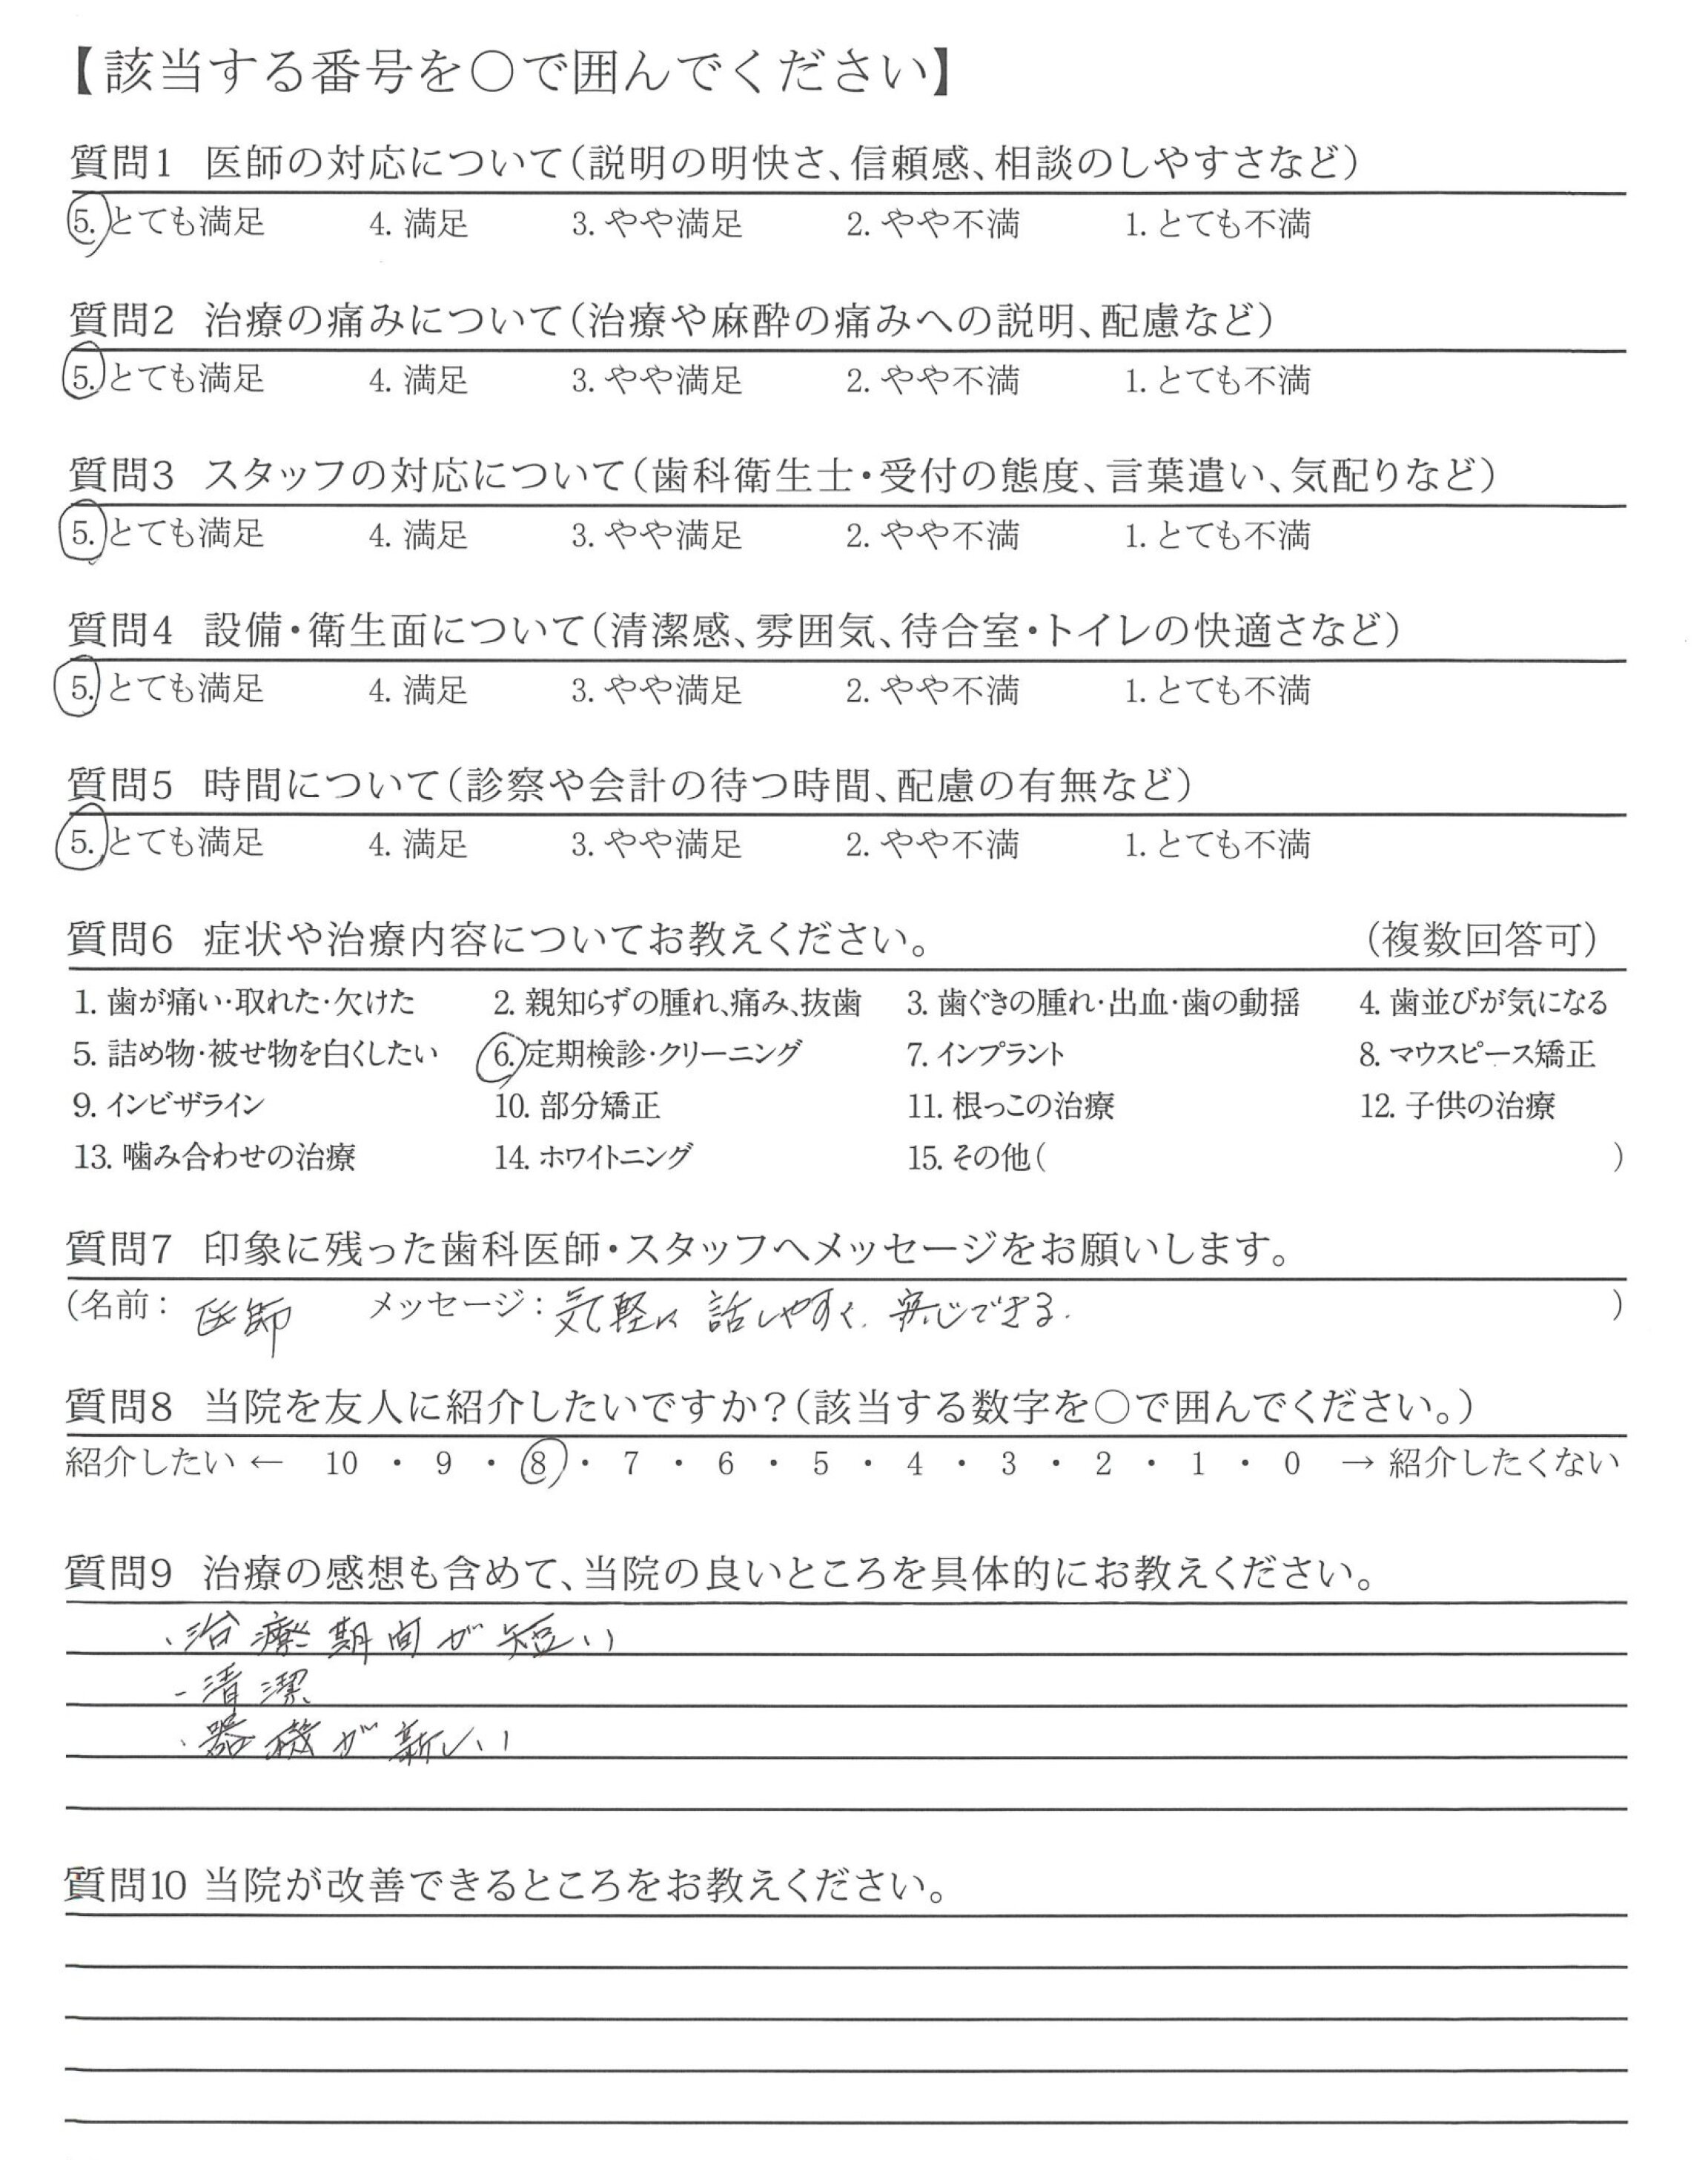 【該当する番号を○で囲んでください】
質問1 医師の対応について(説明の明快さ、信頼感、相談のしやすさなど)
5. とても満足 4. 満足 3. やや満足 2. やや不満 1. とても不満
質問2 治療の痛みについて(治療や麻酔の痛みへの説明、配慮など)
5. とても満足 4. 満足 3. やや満足 2. やや不満 1. とても不満
質問3 スタッフの対応について(歯科衛生士・受付の態度、言葉遣い、気配りなど)
5. とても満足 4. 満足 3. やや満足 2. やや不満 1. とても不満
質問4 設備・衛生面について(清潔感、雰囲気、待合室・トイレの快適さなど)
5. とても満足 4. 満足 3. やや満足 2. やや不満 1. とても不満
質問5 時間について(診察や会計の待つ時間、配慮の有無など)
5. とても満足 4. 満足 3. やや満足 2. やや不満 1. とても不満
質問6 症状や治療内容についてお教えください。 (複数回答可)
1. 歯が痛い・取れた・欠けた 2. 親知らずの腫れ、痛み、抜歯 3. 歯ぐきの腫れ・出血・歯の動揺 4. 歯並びが気になる
5. 詰め物・被せ物を白くしたい 6. 定期検診・クリーニング 7. インプラント 8. マウスピース矯正
9. インビザライン 10. 部分矯正 11. 根っこの治療 12. 子供の治療
13. 噛み合わせの治療 14. ホワイトニング 15. その他( )
質問7 印象に残った歯科医師・スタッフへメッセージをお願いします。
(名前: 医師 メッセージ: 気軽に話しやすく、安心できる. )
質問8 当院を友人に紹介したいですか?(該当する数字を○で囲んでください。)
紹介したい ← 10 ・ 9 ・ 8 ・ 7 ・ 6 ・ 5 ・ 4 ・ 3 ・ 2 ・ 1 ・ 0 → 紹介したくない
質問9 治療の感想も含めて、当院の良いところを具体的にお教えください。
・治療期間が短い
・清潔
・器機が新しい
質問10 当院が改善できるところをお教えください。